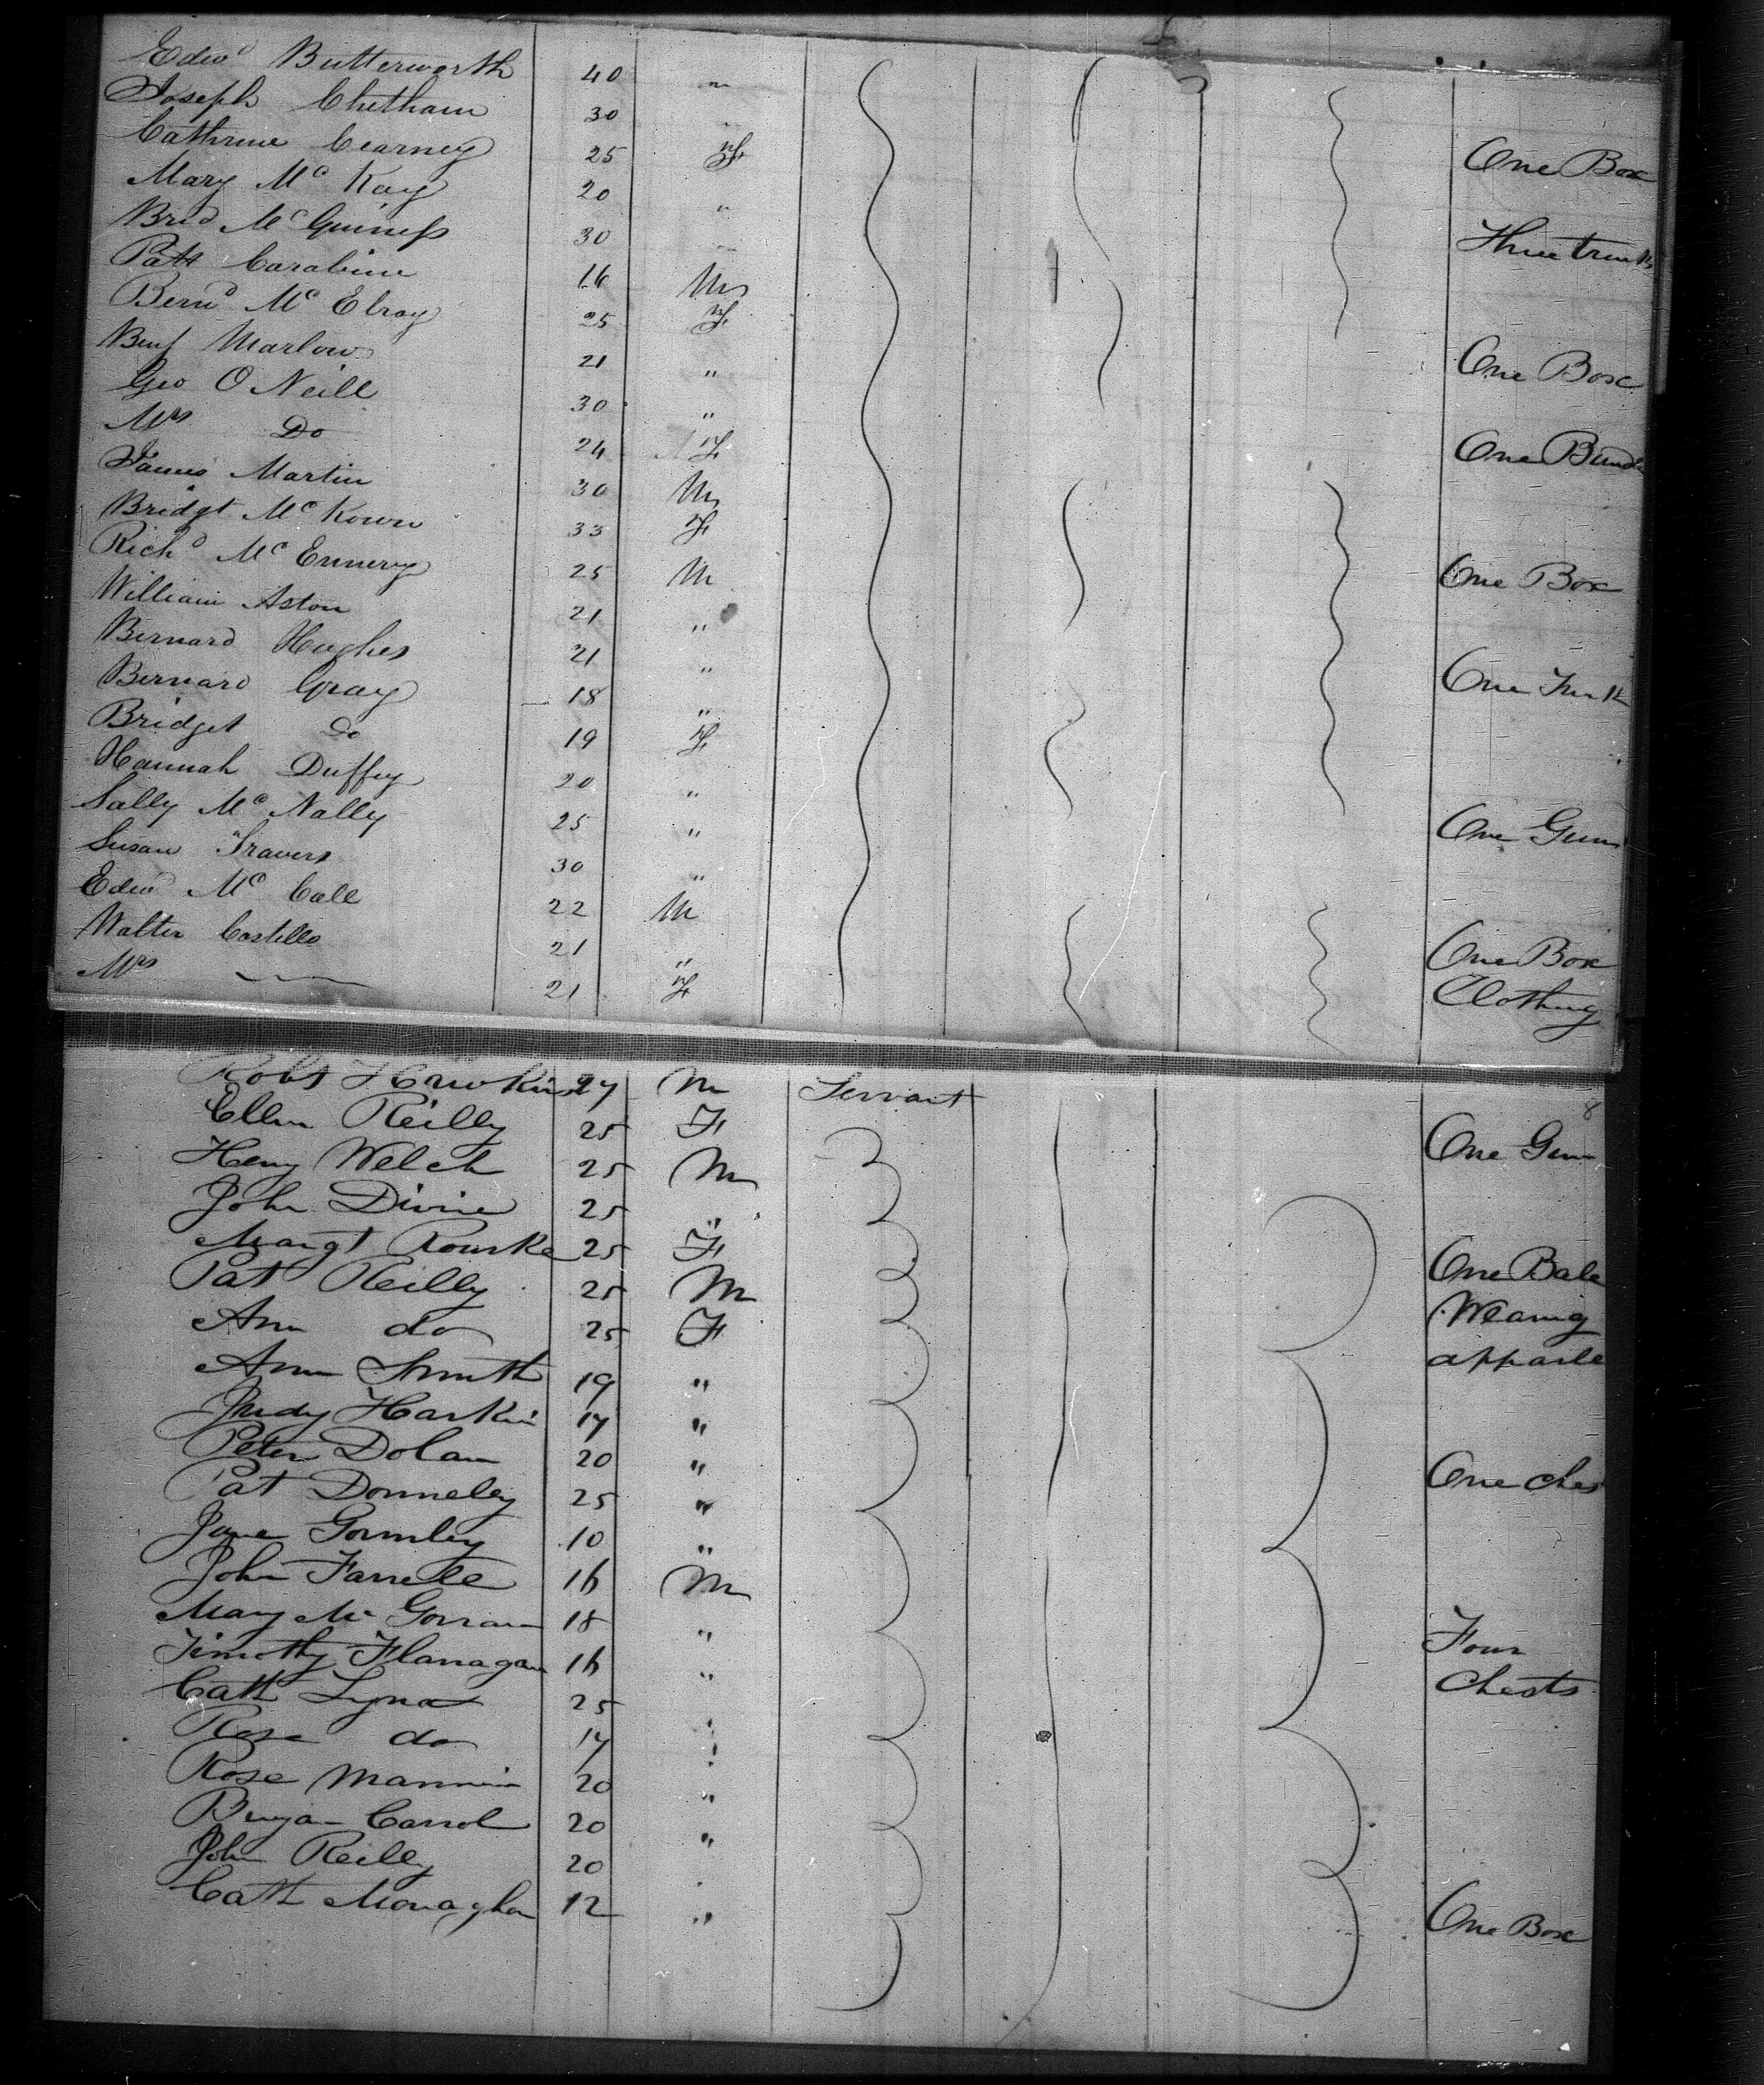 Edwd Butterworth 40 "
Joseph Chetham 30 "
Cathrine Cearney 25 F One Box
Mary Mc Kay 20 "
Brid McGuiness 30 " Three trunks
Patt Carabine 16 M
Bernd Mc Elroy 25 F
Benj Marlow 21 " One Box
Geo O Neill 30 "
Mrs Do 24 F One Bundle
James Martin 30 M
Bridgt McKown 33 F
Richd Mc Ennery 25 M One Box
William Aston 21 "
Bernard Hughes 21 "
Bernard Gray 18 " One Trunk
Bridget Do 19 F
Hannah Duffey 20 "
Sally Mc Nally 25 " One Gun
Susan Travers 30 "
Edwd Mc Call 22 M
Walter Costello 21 " One Box
Mrs 21 F Clothing
Robt 27 M Servant
Ellen Reilly 25 F One Gun
Heny Welch 25 M
John Divine 25 "
Margt Rourke 25 F One Bale
Pat Reilly 25 M Wearing
Ann do 25 F apparle
Ann Smith 19 "
Judy Harkin 17 "
Peter Dolan 20 " One Ches
Pat Donneley 25 "
Jane Gormley 10 "
John Farrell 16 M
Mary Mc Gorran 18 " Four
Timothy Flanagan 16 " Chests
Cath 25 "
Rose do 17 "
Rose Mannin 20 "
Carrol 20 "
John Reilly 20 "
Cath Monaghan 12 " One Box
8